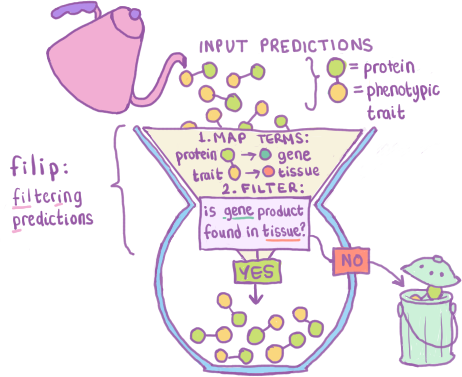 INPUT PREDICTIONS
= protein
= phenotypic
trait
filip:
filtering
predictions
1. MAP TERMS:
protein → gene
trait → tissue
2. FILTER:
is gene product
found in tissue?
YES
NO